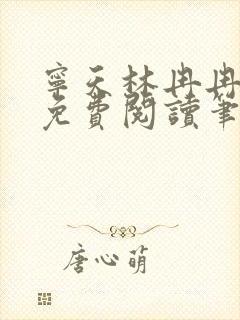 寧天林冉冉
免費閱讀筆
唐心萌